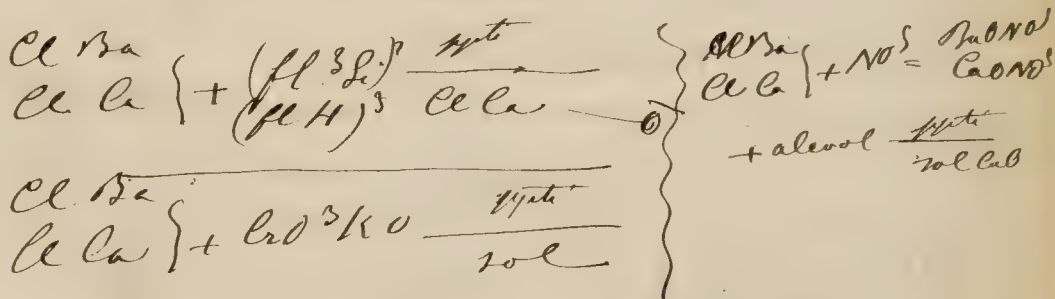 Cl Ba
Cl Ca } + (fl³Si)² (fl H)³ ppté / Cl Ca
Cl Ba
Cl Ca } + CrO³KO ppté / sol
Cl Ba
Cl Ca } + NO⁵ = BaONO⁵ CaONO⁵
+ alcool ppté / sol CaO